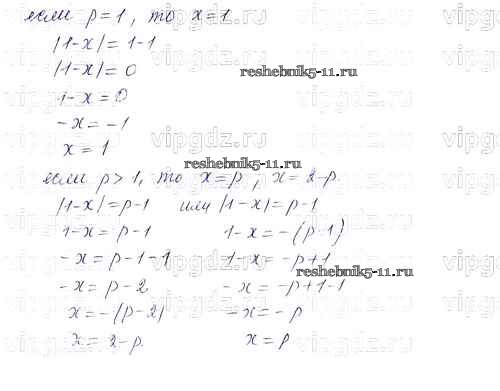 если p=1, то x=1
|1-x|=1-1
|1-x|=0
1-x=0
-x=-1
x=1
если p>1, то x=p, x=2-p
|1-x|=p-1 или |1-x|=p-1
1-x=p-1 1-x=-(p-1)
-x=p-1-1 1-x=-p+1
-x=p-2 -x=-p+1-1
x=-(p-2) -x=-p
x=2-p x=p
reshebnik5-11.ru
reshebnik5-11.ru
reshebnik5-11.ru
vipgdz.ru